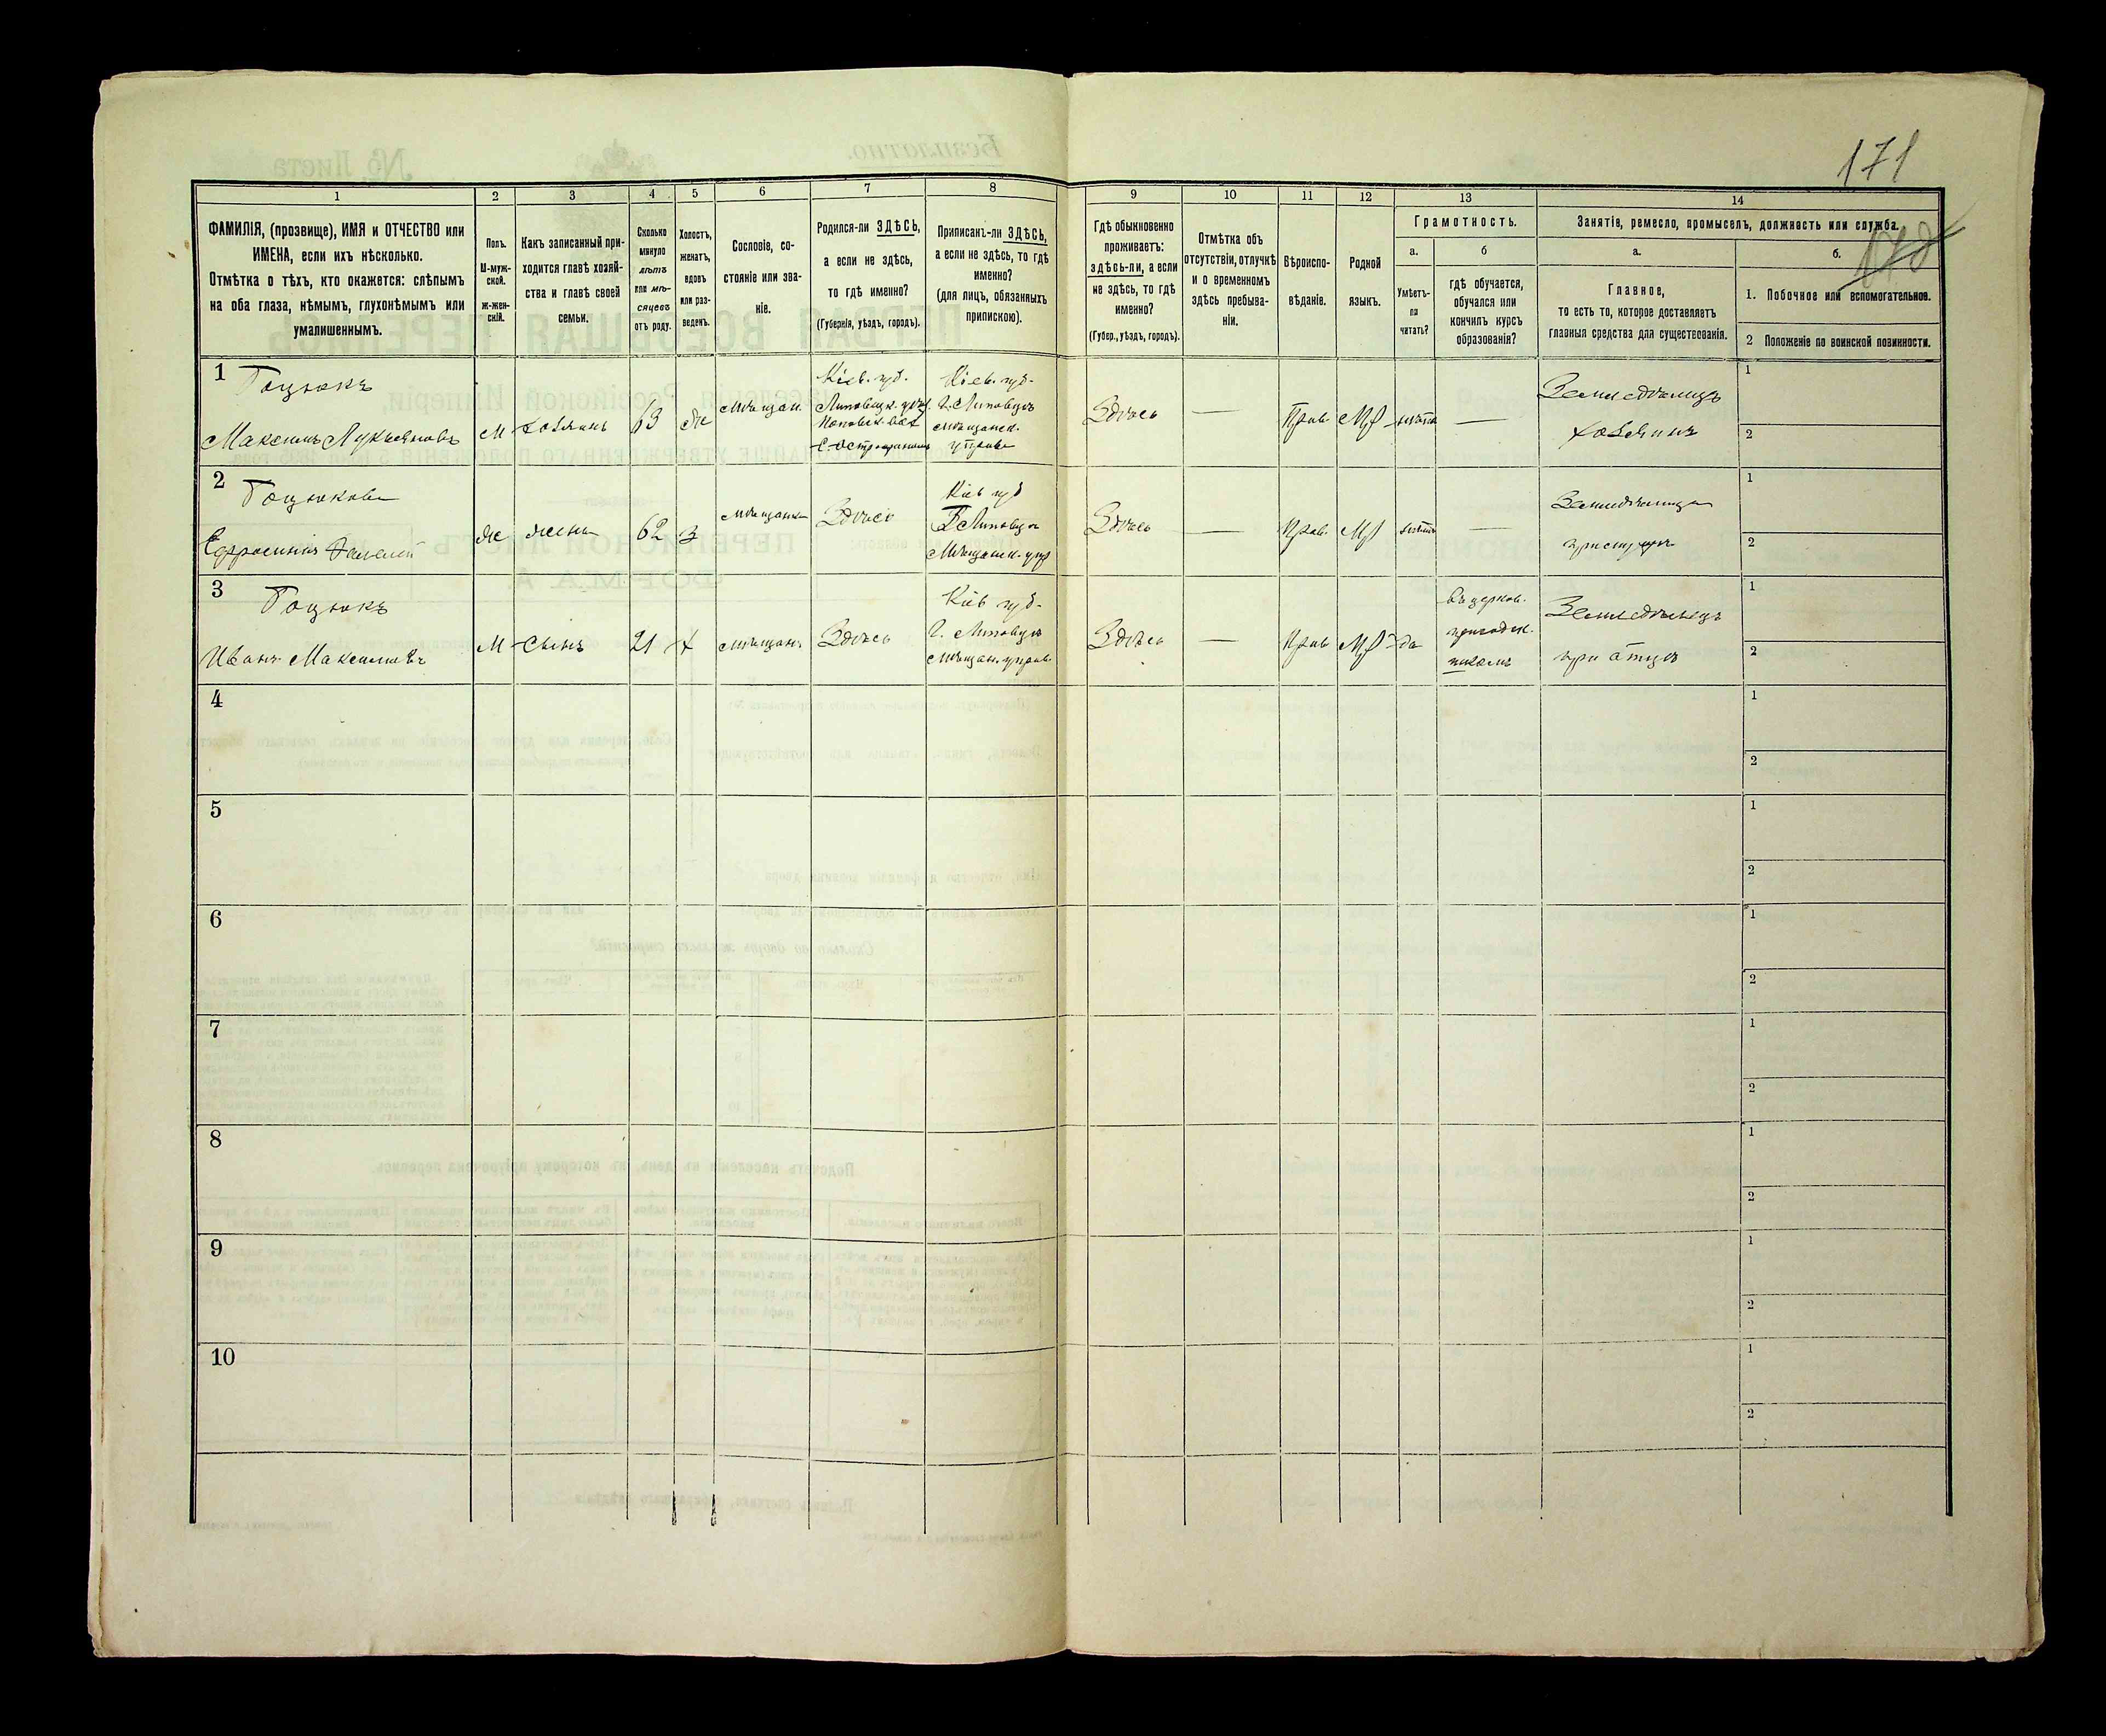 171
1
2
3
4
5
6
7
8
9
10
11
12
13
14
ФАМИЛІЯ, (прозвище), ИМЯ и ОТЧЕСТВО или
ИМЕНА, если ихъ нѣсколько.
Отмѣтка о тѣхъ, кто окажется: слѣпымъ
на оба глаза, нѣмымъ, глухонѣмымъ или
умалишеннымъ.
Полъ.
М-муж-
ской.
ж-жен-
скій.
Какъ записанный при-
ходится главѣ хозяй-
ства и главѣ своей
семьи.
Сколько
минуло
лѣтъ
или мѣ-
сяцевъ
отъ роду.
Холостъ,
женатъ,
вдовъ
или раз-
веденъ.
Сословіе, со-
стояніе или зва-
ніе.
Родился-ли ЗДѢСЬ,
а если не здѣсь,
то гдѣ именно?
(Губернія, уѣздъ, городъ).
Приписанъ-ли ЗДѢСЬ,
а если не здѣсь, то гдѣ
именно?
(для лицъ, обязанныхъ
припискою).
Гдѣ обыкновенно
проживаетъ:
здѣсь-ли, а если
не здѣсь, то гдѣ
именно?
(Губер., уѣздъ, городъ).
Отмѣтка объ
отсутствіи, отлучкѣ
и о временномъ
здѣсь пребыва-
ніи.
Вѣроиспо-
вѣданіе.
Родной
языкъ.
Грамотность.
а.
Умѣетъ-
ли
читать?
б
гдѣ обучается,
обучался или
кончилъ курсъ
образованія?
Занятія, ремесло, промыселъ, должность или служба.
а.
Главное,
то есть то, которое доставляетъ
главныя средства для существованія.
б.
1. Побочное или вспомогательное.
2 Положеніе по воинской повинности.
1
Гоцюкъ
Максимъ Лукьяновъ
М
хозяинъ
63
ж
мѣщан.
Кіев. губ.
Липовецк. уѣз.
Кіев. губ.
г. Липовцѣ
мѣщанск.
управа
Здѣсь
—
Прав
Мр
нѣтъ
—
Земледѣлецъ
хозяинъ
1
2
2
Гоцюкова
Ефросинія
ж
жена
62
З
мѣщанка
Здѣсь
Кіев губ
Г Липовцѣ
Мѣщанск. упр
Здѣсь
—
Прав.
Мр
нѣтъ
—
Земледѣлица
1
2
3
Гоцюкъ
Иванъ Максимовъ
М
Сынъ
21
х
мѣщанъ
Здѣсь
Кіев губ.
г. Липовцѣ
мѣщан. управ.
Здѣсь
—
Прав
Мр
да
въ церков.
приходск.
школѣ
Земледѣлецъ
при отцѣ
1
2
4
1
2
5
1
2
6
1
2
7
1
2
8
1
2
9
1
2
10
1
2